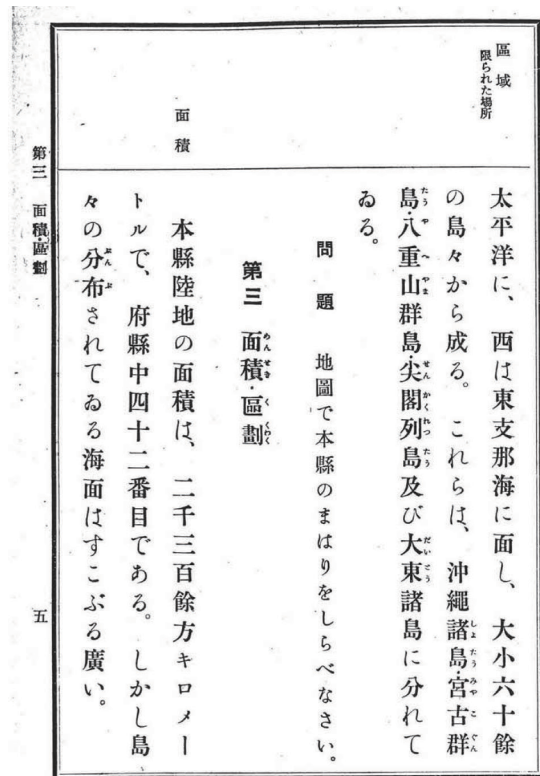 區域
限られた場所
太平洋に、西は東支那海に面し、大小六十餘
の島々から成る。これらは、沖繩諸島・宮古群
島・八重山群島・尖閣列島及び大東諸島に分れて
ゐる。
問題 地圖で本縣のまはりをしらべなさい。
第三 面積・區劃
面積
本縣陸地の面積は、二千三百餘方キロメー
トルで、府縣中四十二番目である。しかし島
々の分布されてゐる海面はすこぶる廣い。
第三 面積・區劃
五